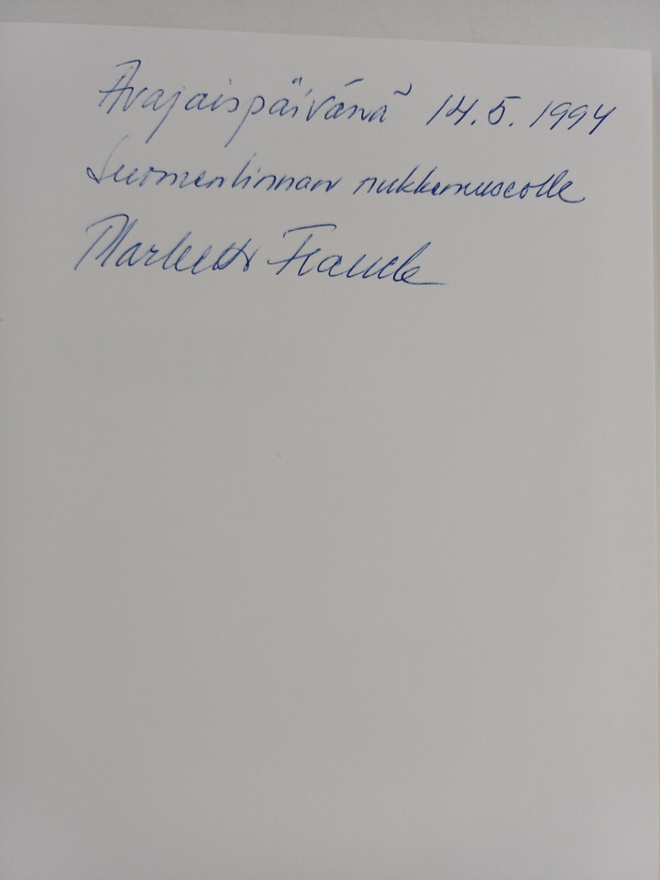 Avajaispäivänä 14.5.1994
Suomenlinnan nukkemuseolle
Marketta Franck